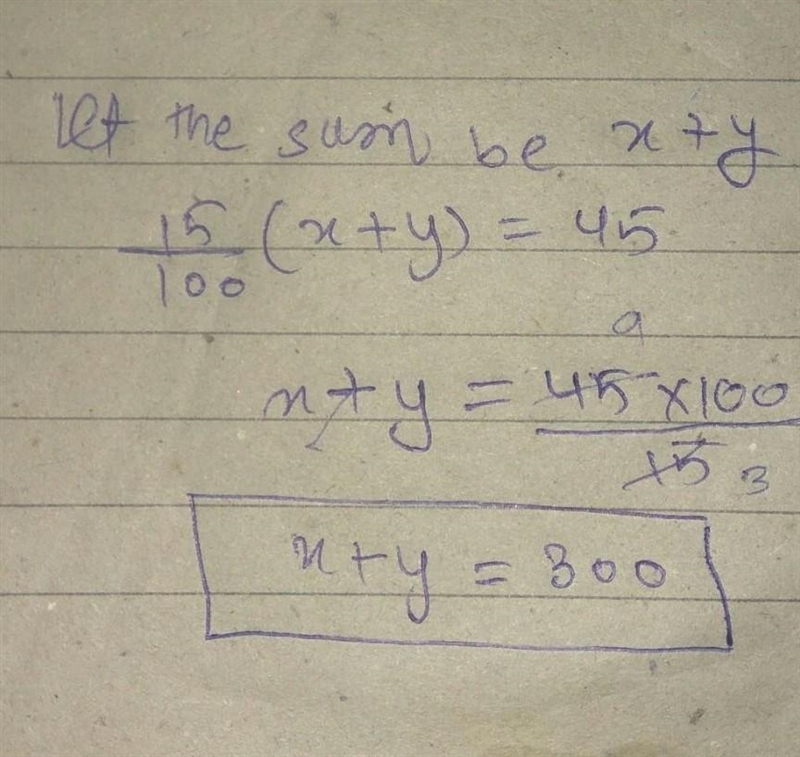 let the sum be x+y
15/100 (x+y) = 45
9
x+y = 45×100/15 3
x+y = 300